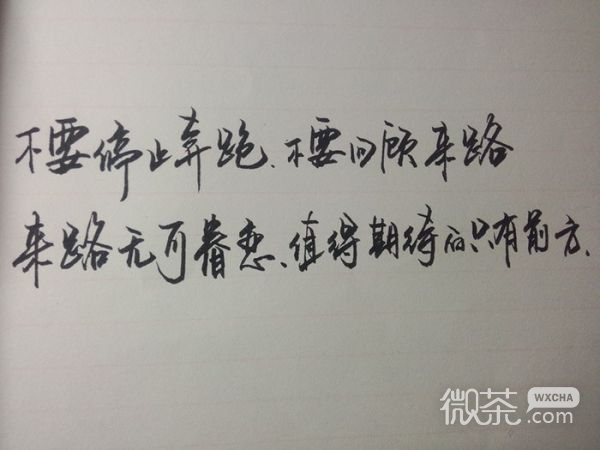 不要停止奔跑、不要回顾来路
来路无可眷恋、值得期待的只有前方、
微茶
WXCHA
.com